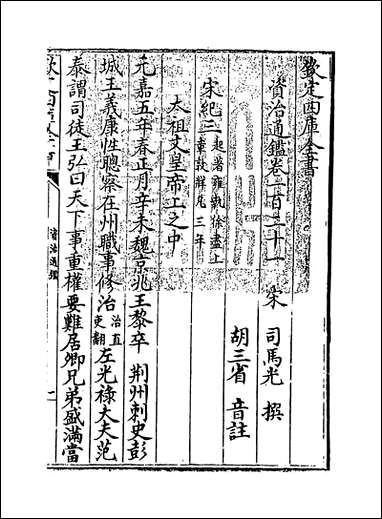 欽定四庫全書
資治通鑑卷一百二十一
宋 司馬光 撰
胡三省 音註
宋紀三 起著雍執徐盡上章敦牂凡三年
太祖文皇帝上之中
元嘉五年春正月辛未魏京兆王黎卒 荆州刺史彭
城王義康性聰察在州職事修治 治直吏翻 左光祿大夫范
泰謂司徒王弘曰天下事重權要難居卿兄弟盛滿當
資治通鑑